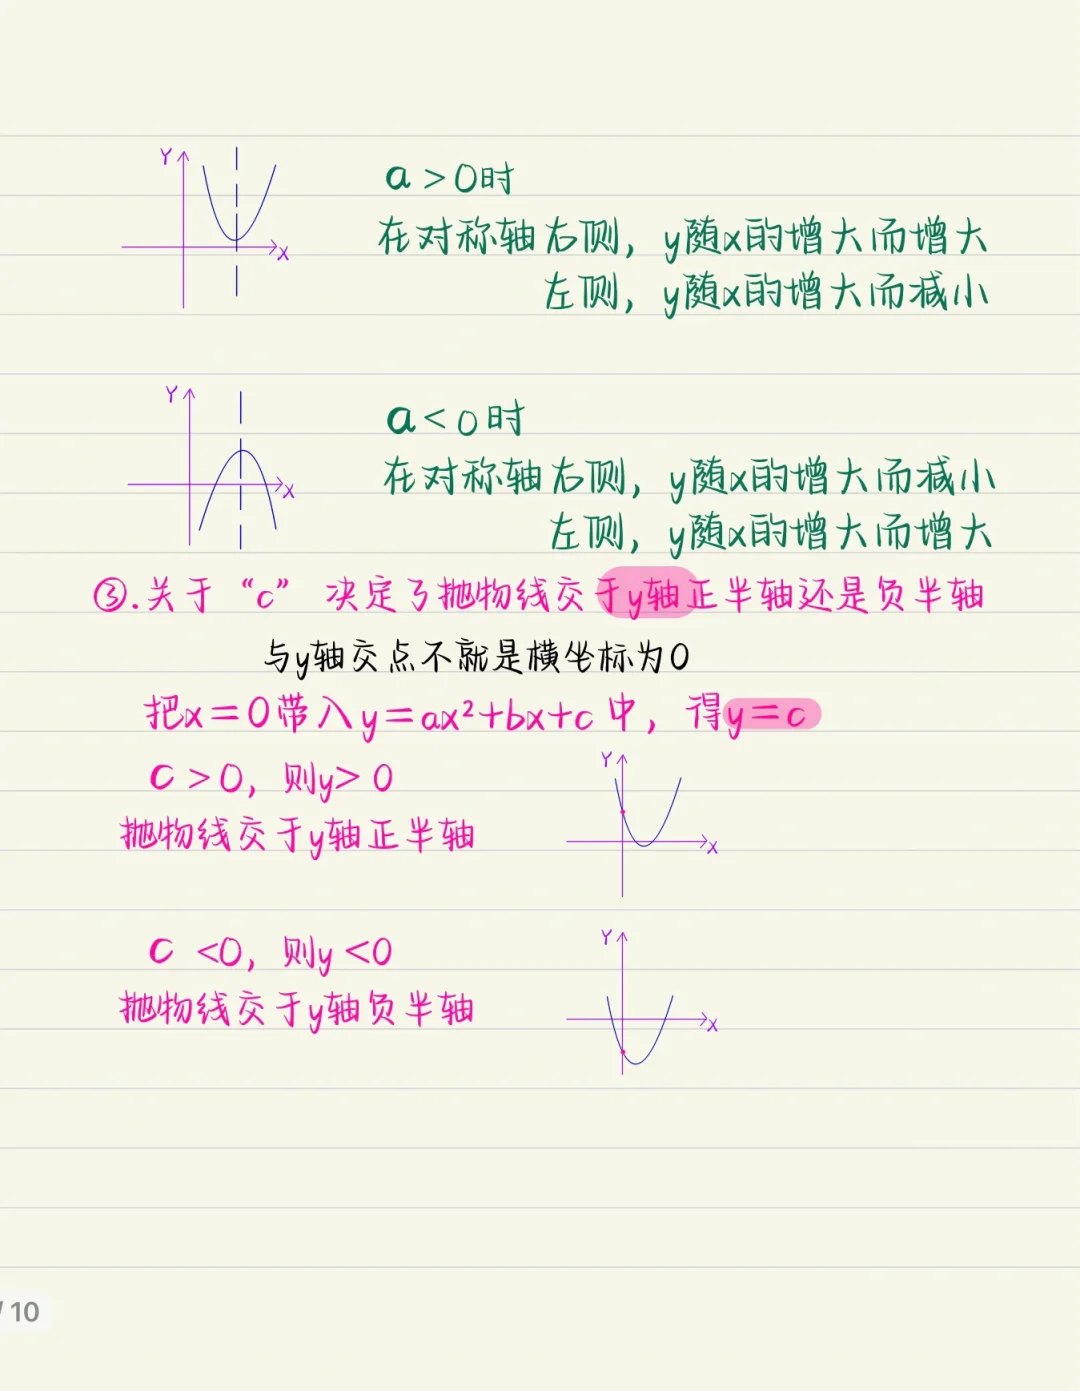 Y
X
a>0时
在对称轴右侧，y随x的增大而增大
左侧，y随x的增大而减小
Y
X
a<0时
在对称轴右侧，y随x的增大而减小
左侧，y随x的增大而增大
③.关于“c” 决定了抛物线交于y轴正半轴还是负半轴
与y轴交点不就是横坐标为0
把x=0带入y=ax²+bx+c中，得y=c
c>0，则y>0
抛物线交于y轴正半轴
Y
X
c <0，则y<0
抛物线交于y轴负半轴
Y
X
/10